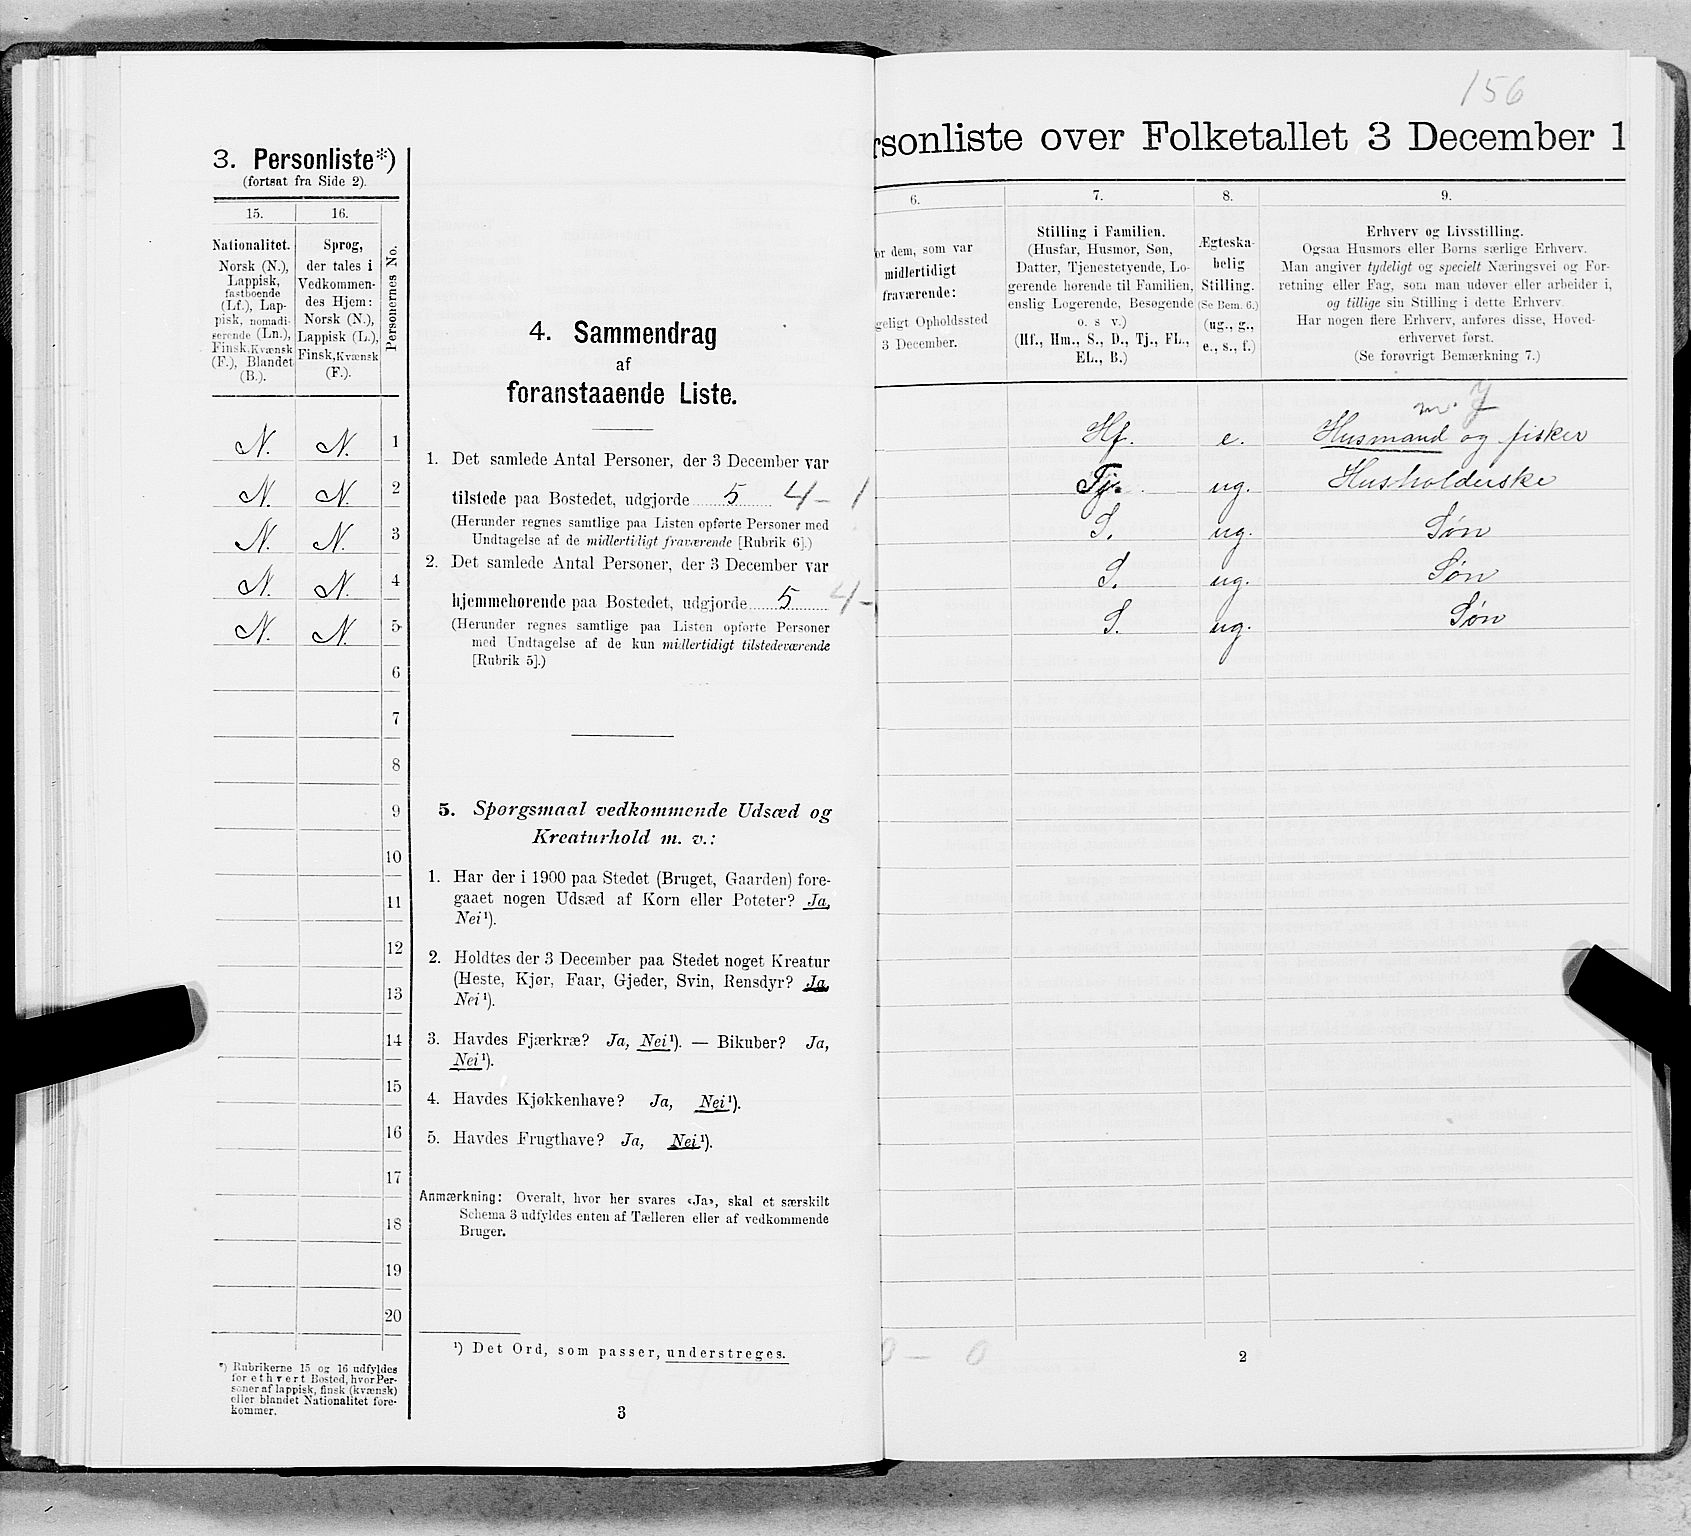 3. Personliste*)
(fortsat fra Side 2).
15.
16.
Nationalitet.
Norsk (N.),
Lappisk,
fastboende
(Lf.), Lap-
pisk, nomadi-
serende (Ln.),
Finsk, Kvænsk
(F.), Blandet
(B.).
Sprog,
der tales i
Vedkommen-
des Hjem:
Norsk (N.),
Lappisk (L.),
Finsk, Kvænsk
(F.).
Personernes No.
N. N. 1
N. N. 2
N. N. 3
N. N. 4
N. N. 5
6
7
8
9
10
11
12
13
14
15
16
17
18
19
20
*) Rubrikerne 15 og 16 udfyldes
for ethvert Bosted, hvor Per-
soner af lappisk, finsk (kvænsk)
eller blandet Nationalitet fore-
kommer.
4. Sammendrag
af
foranstaaende Liste.
1. Det samlede Antal Personer, der 3 December var
tilstede paa Bostedet, udgjorde 5 4 - 1
(Herunder regnes samtlige paa Listen opførte Personer med
Undtagelse af de midlertidigt fraværende [Rubrik 6].)
2. Det samlede Antal Personer, der 3 December var
hjemmehørende paa Bostedet, udgjorde 5 4 -
(Herunder regnes samtlige paa Listen opførte Personer
med Undtagelse af de kun midlertidigt tilstedeværende
[Rubrik 5].)
5. Spørgsmaal vedkommende Udsæd og
Kreaturhold m. v.:
1. Har der i 1900 paa Stedet (Bruget, Gaarden) fore-
gaaet nogen Udsæd af Korn eller Poteter? Ja,
Nei¹).
2. Holdtes der 3 December paa Stedet noget Kreatur
(Heste, Kjør, Faar, Gjeder, Svin, Rensdyr? Ja,
Nei¹).
3. Havdes Fjærkræ? Ja, Nei¹). — Bikuber? Ja,
Nei¹).
4. Havdes Kjøkkenhave? Ja, Nei¹).
5. Havdes Frugthave? Ja, Nei¹).
Anmærkning: Overalt, hvor her svares «Ja», skal et særskilt
Schema 3 udfyldes enten af Tælleren eller af vedkommende
Bruger.
¹) Det Ord, som passer, understreges.
3
156
rsonliste over Folketallet 3 December 1
6.
7.
8.
9.
or dem, som var
midlertidigt
fraværende:
geligt Opholdssted
3 December.
Stilling i Familien.
(Husfar, Husmor, Søn,
Datter, Tjenestetyende, Lo-
gerende hørende til Familien,
enslig Logerende, Besøgende
o. s v.)
(Hf., Hm., S., D., Tj., FL.,
EL., B.)
Ægteska-
belig
Stilling.
(Se Bem. 6.)
(ug., g.,
e., s., f.)
Erhverv og Livsstilling.
Ogsaa Husmors eller Børns særlige Erhverv.
Man angiver tydeligt og specielt Næringsvei og For-
retning eller Fag, som man udøver eller arbeider i,
og tillige sin Stilling i dette Erhverv.
Har nogen flere Erhverv, anføres disse, Hoved-
erhvervet først.
(Se forøvrigt Bemærkning 7.)
m. J
Hf. e. Husmand og fisker
Tj. ug. Husholderske
S. ug. Søn
S. ug. Søn
S. ug. Søn
0 - 0
2